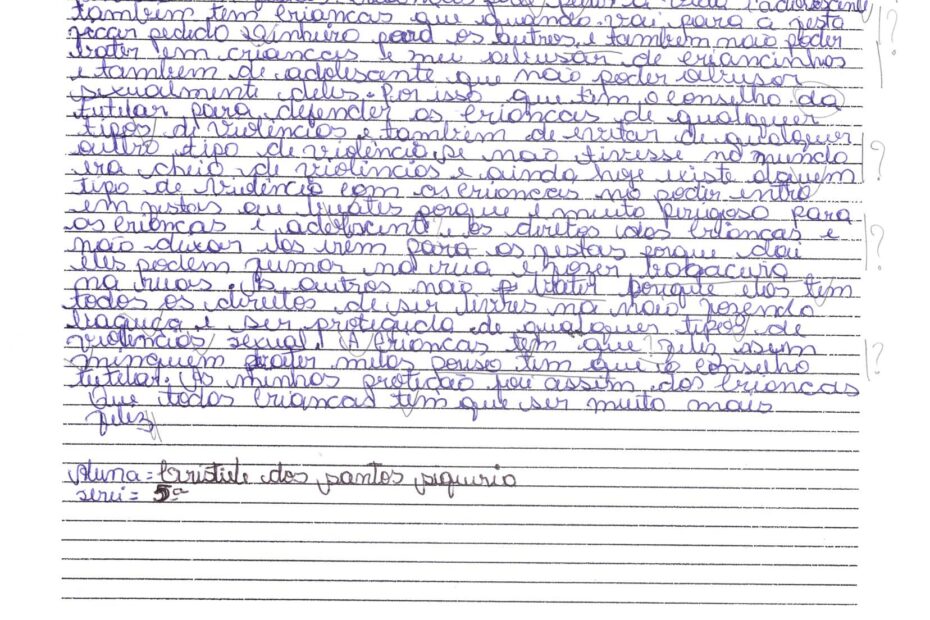 tambem tem criancas que quando vai para a festa
ficar pedido dinheiro para os outros, e tambem não poder
bater em criancas e nei abrusar de criancinhos
e tambem de adolescante que não poder abrusor
sexualmente deles. Por isso que tem o conselho da
tutelar para defender as criancas de qualquer
tipos de violências e tambem de evitar de qualquer
outro tipo de violência, se não tivesse no mundo
era cheio de violências e ainda hoje existe alguem
tipo de violência com as criancas no poder entra
em festas ou boates porque é muito perigoso para
as criencas e adolescente e os diretos das criancas e
não deixar eles irem para as festas porque dai
eles podem fumar na rua e fazer bagacura
na ruas. As outros não bater porque elas tem
todos os direitos de ser livres na não fazendo
bagunça e ser protiguda de qualquer tipos de
violências sexual. A criancas tem que feliz sem
ninguem bater nelas pouso tem que o conselho
tutelar. As minhas proteção foi assim das criancas
Que todas criancas tem que ser muito mais
feliz
Aluna = Cristiele dos santos siqueria
serei = 5ª